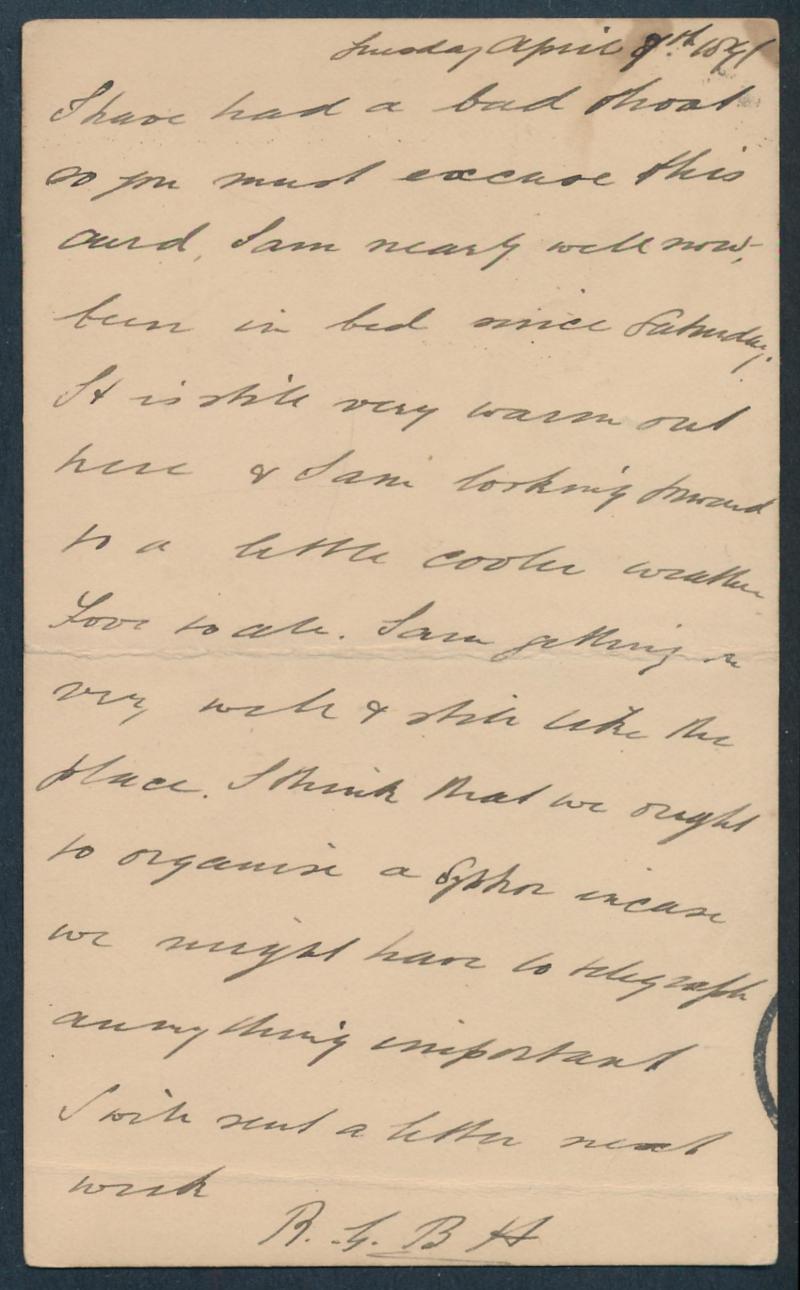 Tuesday April 7th 1891
I have had a bad throat
so you must excuse this
card, I am nearly well now,
been in bed since Saturday.
It is still very warm out
here & I am looking forward
to a little cooler weather
Love to all. I am getting on
very well & still like the
place. I think that we ought
to organise a incase
we might have to telegraph
annything important
I will sent a letter next
week
R. G. B H